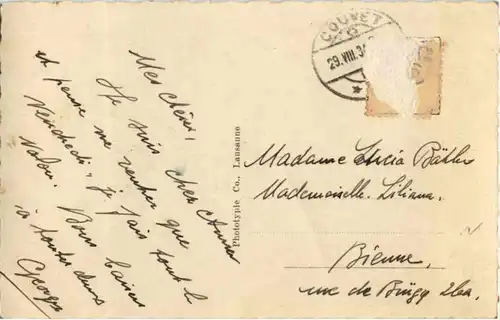 Mes chéries,
Je suis chez Anna
et pense me rendre que
Vendredi, je fais tout le
Vallon. Bons baisers
à toutes deux
Georges
COUVET
29.VIII.34
Phototypie Co., Lausanne
Madame Bähler
Mademoiselle Liliana.
Bienne.
rue de Brügg 2ba.